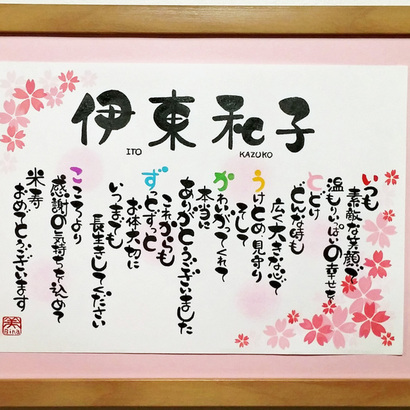 伊東和子
ITO
KAZUKO
いつも
素敵な笑顔で
温もりいっぱいの幸せを
とどけ
どんな時も
広く大きな心で
うけとめ見守り
そして
かわいがってくれて
本当に
ありがとうございました
これからも
ずっとずっと
お体大切に
いつまでも
長生きしてください
こころより
感謝の気持ちを込めて
米寿
おめでとうございます
美
gina